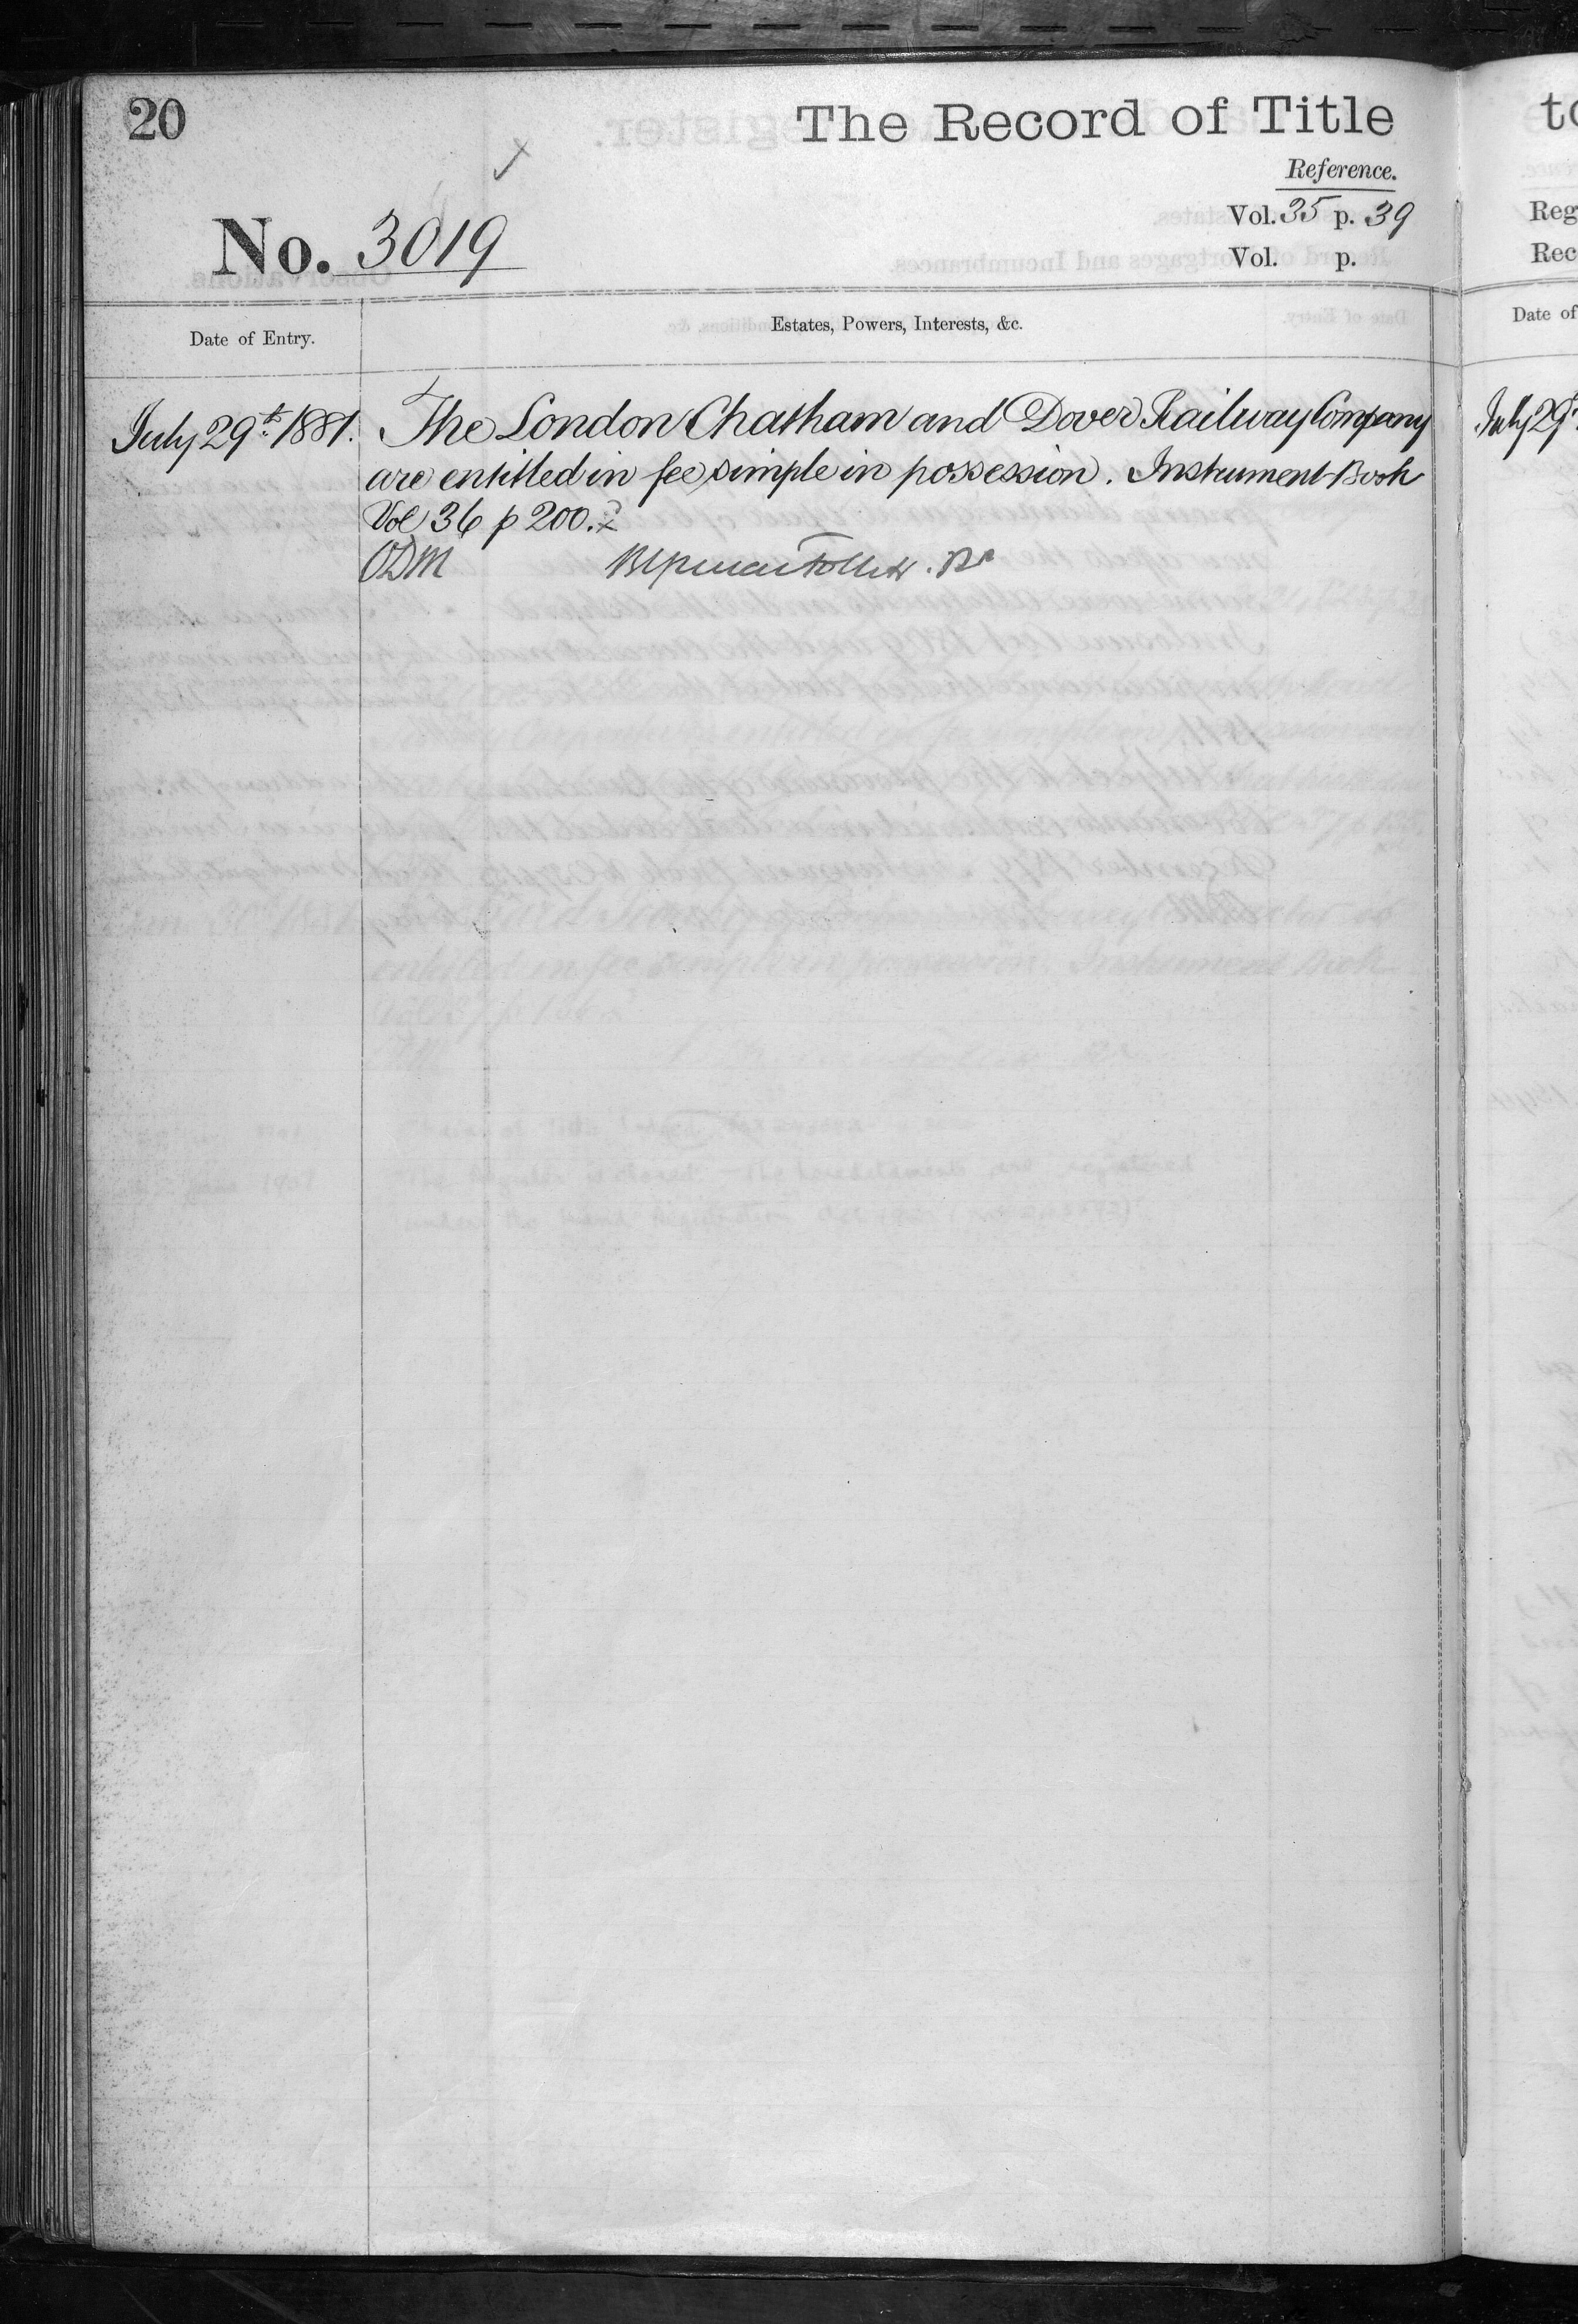 20
The Record of Title
Reference.
Vol. 35 p. 39
No. 3019
Vol. p.
Date of Entry.
Estates, Powers, Interests, &c.
July 29th 1881.
The London Chatham and Dover Railway Company
are entitled in fee simple in possession. Instrument Book
Vol 36 p 200.
ODM
to
Reg
Rec
Date of
July 29th